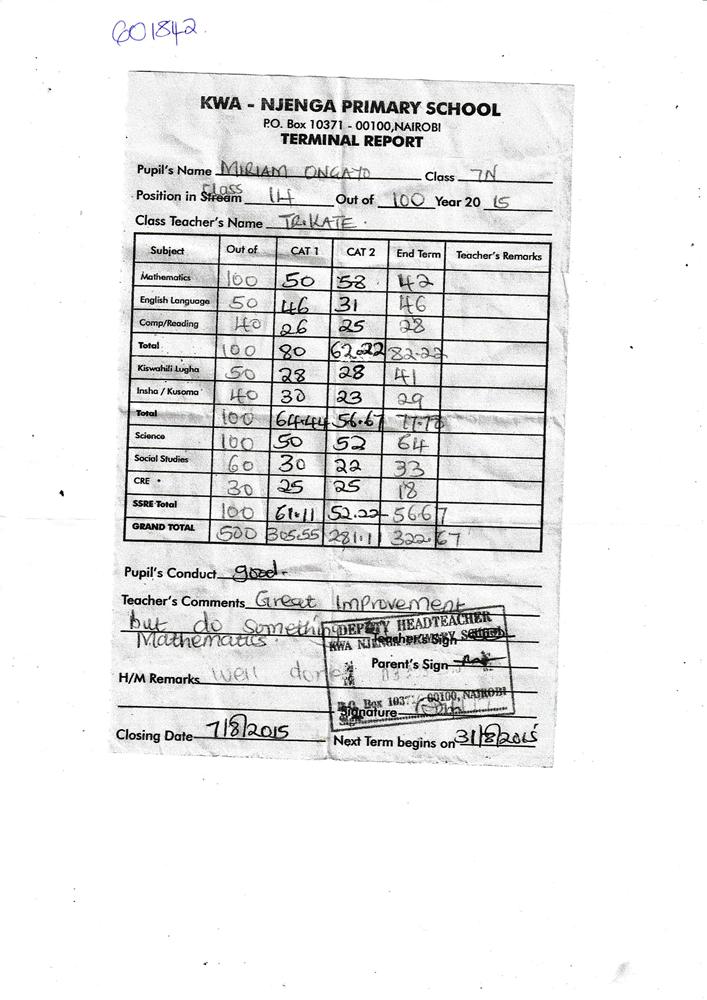 601842
KWA - NJENGA PRIMARY SCHOOL
P.O. Box 10371 - 00100, NAIROBI
TERMINAL REPORT
Pupil's Name MIRIAM ONGAYO Class 7N
Class
Position in Stream 14 Out of 100 Year 20 15
Class Teacher's Name TR. KATE.
Subject Out of CAT 1 CAT 2 End Term Teacher's Remarks
Mathematics 100 50 58 42
English Language 50 46 31 46
Comp/Reading 40 26 25 28
Total 100 80 62.22 82.22
Kiswahili Lugha 50 28 28 41
Insha / Kusoma 40 30 23 29
Total 100 64.44 56.67 77.78
Science 100 50 52 64
Social Studies 60 30 22 33
CRE 30 25 25 18
SSRE Total 100 61.11 52.22 56.67
GRAND TOTAL 500 305.55 281.11 322.67
Pupil's Conduct good.
Teacher's Comments Great Improvement
but do something
Mathematics
DEPUTY HEADTEACHER
KWA NJENGA PRIMARY SCHOOL
Teacher's Sign
Parent's Sign
H/M Remarks well done
P.O. Box 10371 - 00100, NAIROBI
Signature
Closing Date 7/8/2015 Next Term begins on 31/8/2015